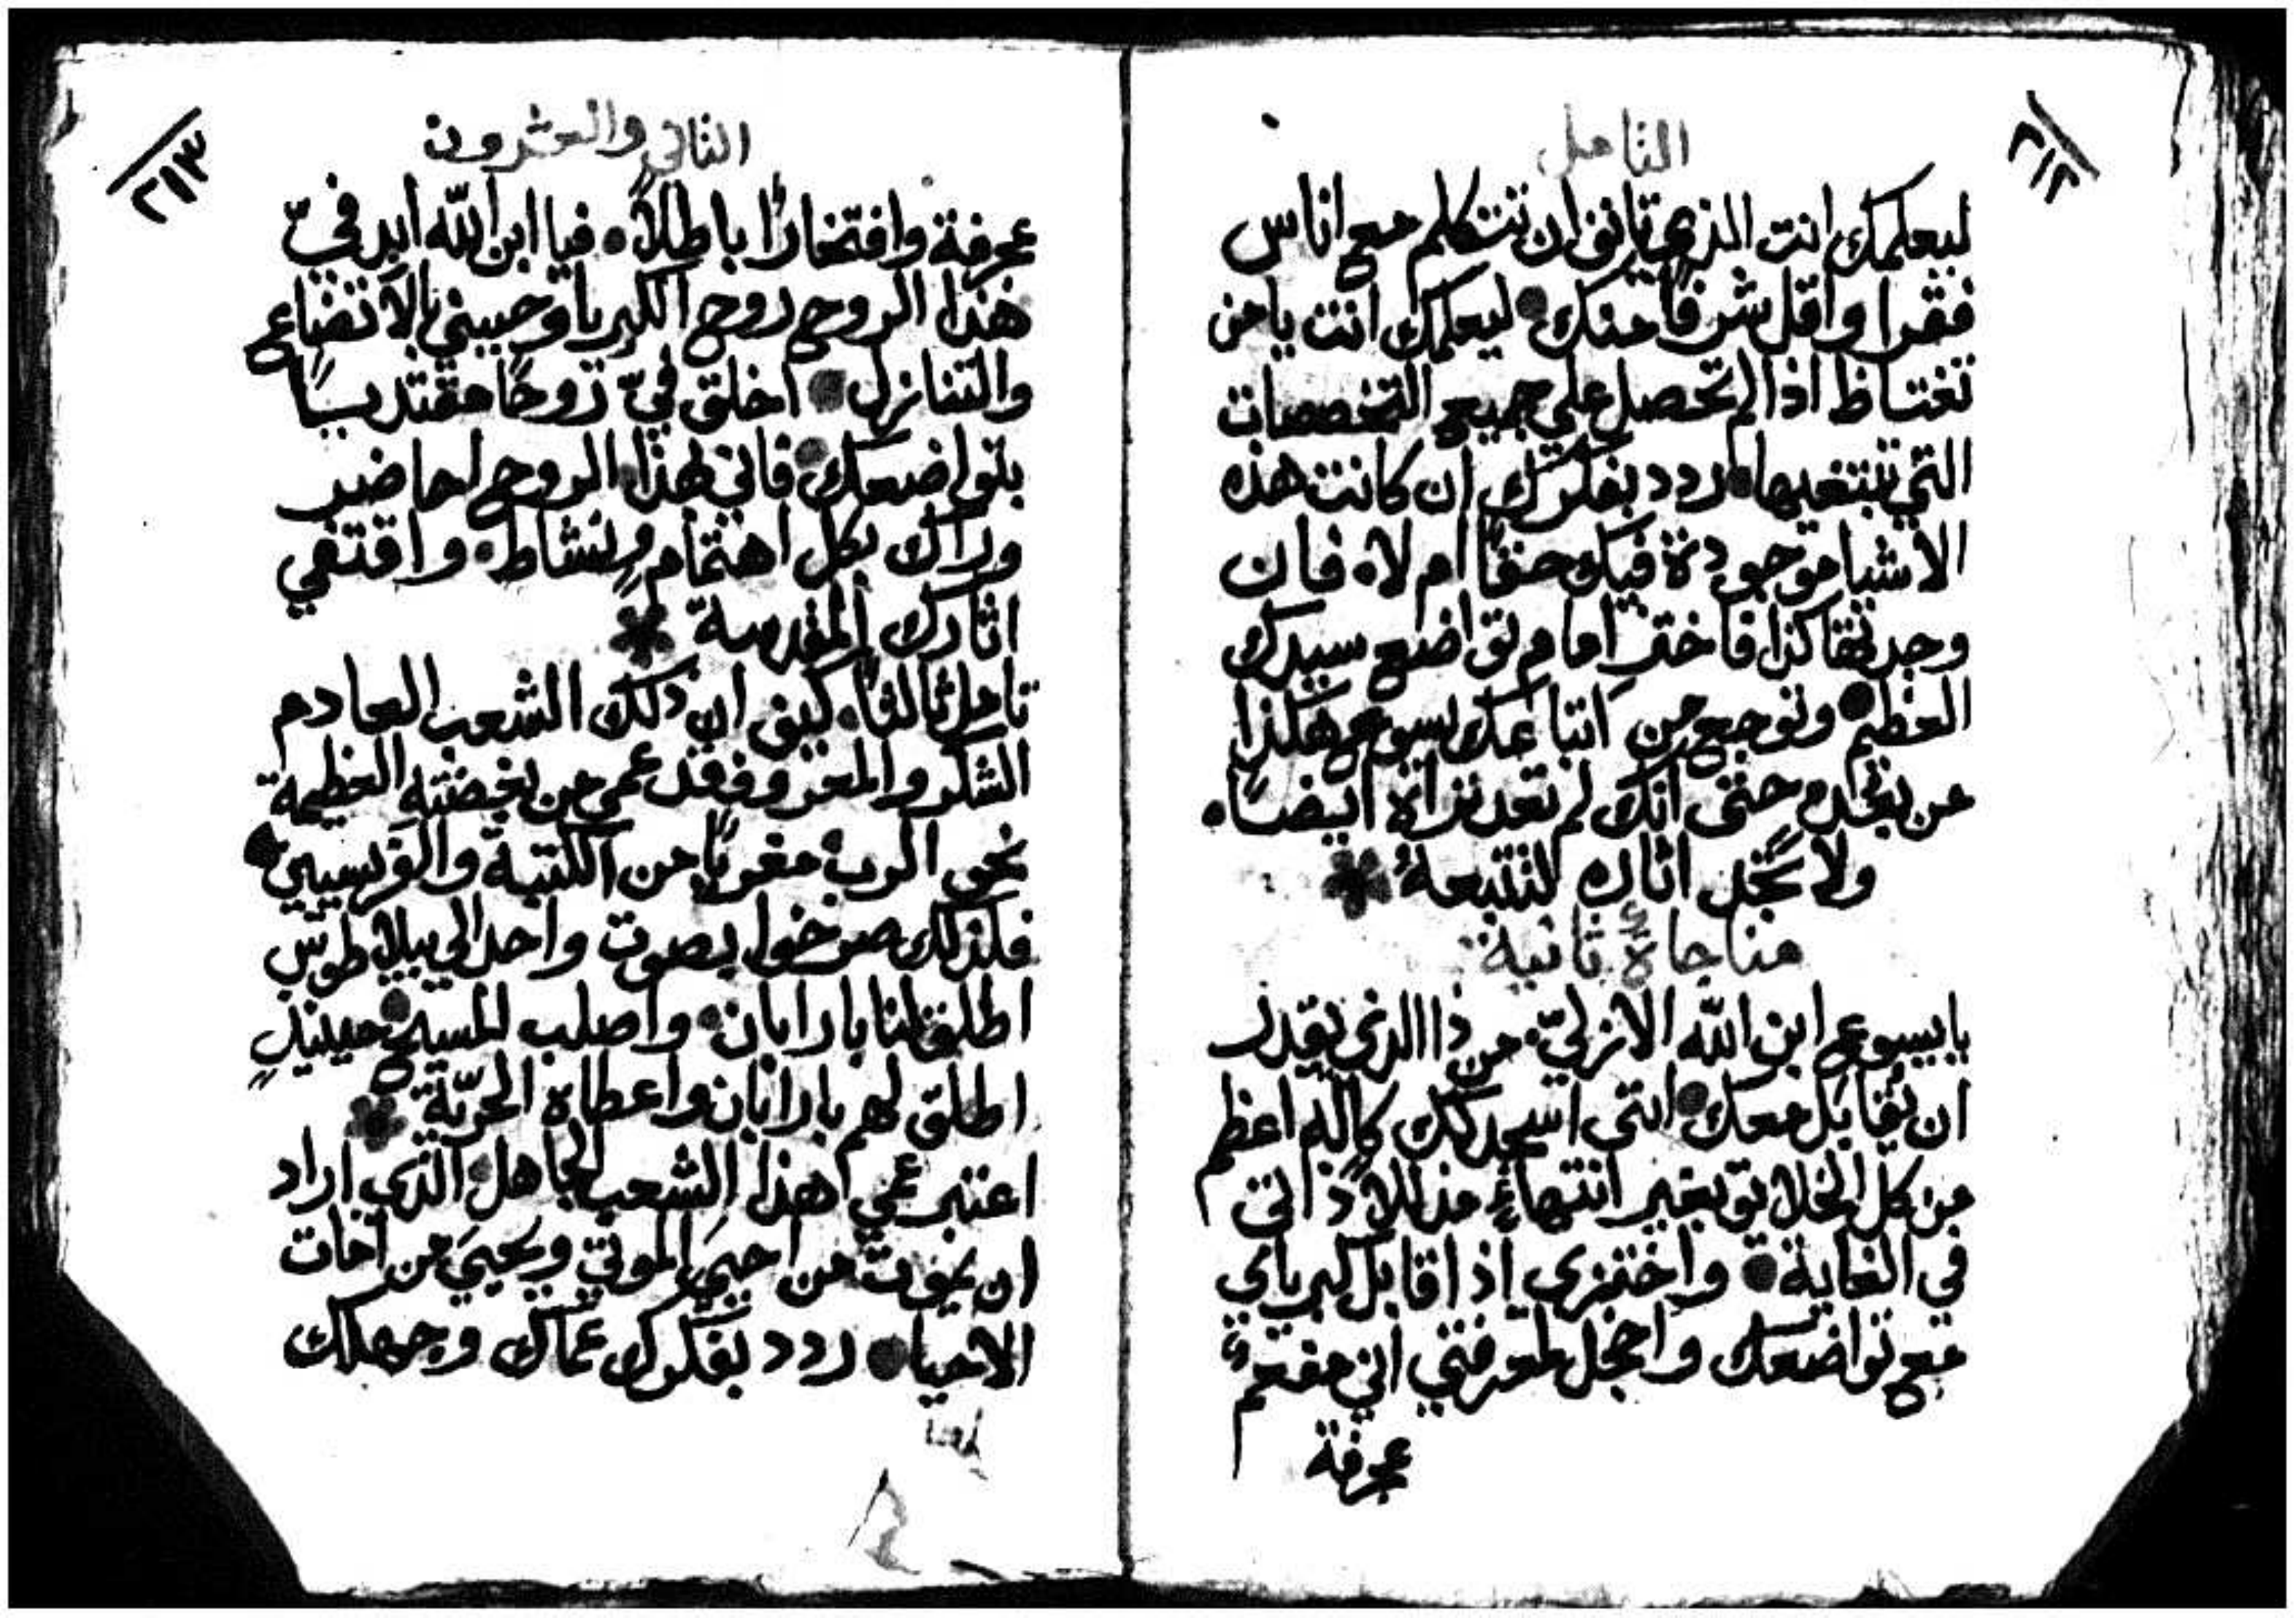 ٢١٢
التامل
ليعلمك انت الذي تانف ان تتكلم مع اناس
فقرا واقل شرفًا منك • ليعلمك انت يا من
تغتاظ اذا لم تحصل علي جميع التخصصات
التي تبتغيها • ردد بفكرك ان كانت هذه
الاشيا موجودة فيك حقًا ام لا • فان
وجدتها كذا فاخز امام تواضع سيدك
العظيم • وتوجع من اتباعك يسوع هكذا
من بعد • حتى انك لم تعد تراه ايضًا •
ولا تجد اثاره لتتبعهُ *
مناجاة ثانية
يا يسوع ابن الله الازليّ • من ذا الذي يقدر
ان يقابل معك • انني اسجد لك كاله اعظم
من كل الخلايق بغير انتهاء مذللًا ذاتي
في الغاية • واختزي اذ اقابل كبرياي
مع تواضعك واخجل لمعرفتي اني مفعم
عجرفة
٢١٣
الثاني والعشرون
عجرفة وافتخارًا باطلًا • فيا ابن الله ابد فيّ
هذا الروح روح الكبريا وحببني بالاتضاع
والتنازل • اخلق فيّ روحًا مقتديسًا
بتواضعك • فاني لهذا الروح احاضير
وراك بكل اهتمام ونشاط • واقتفي
اثارك المقدسة *
تامل ثالثًا • كيف ان ذلك الشعب العادم
الشكر والمعروف قد عمي من بغضته العظيمة
نحو الرب مغريًا من الكتبة والفريسيين •
فلذلك صرخوا بصوت واحد الي بيلاطوس
اطلق لنا بارابان • واصلب المسيح • حينيذٍ
اطلق لهم بارابان واعطاه الحريّة *
اعتبر عمي هذا الشعب الجاهل الذي اراد
ان يموت من احيي الموتي ويحيي من امات
الاحيا • ردد بفكرك عماك وجهلك